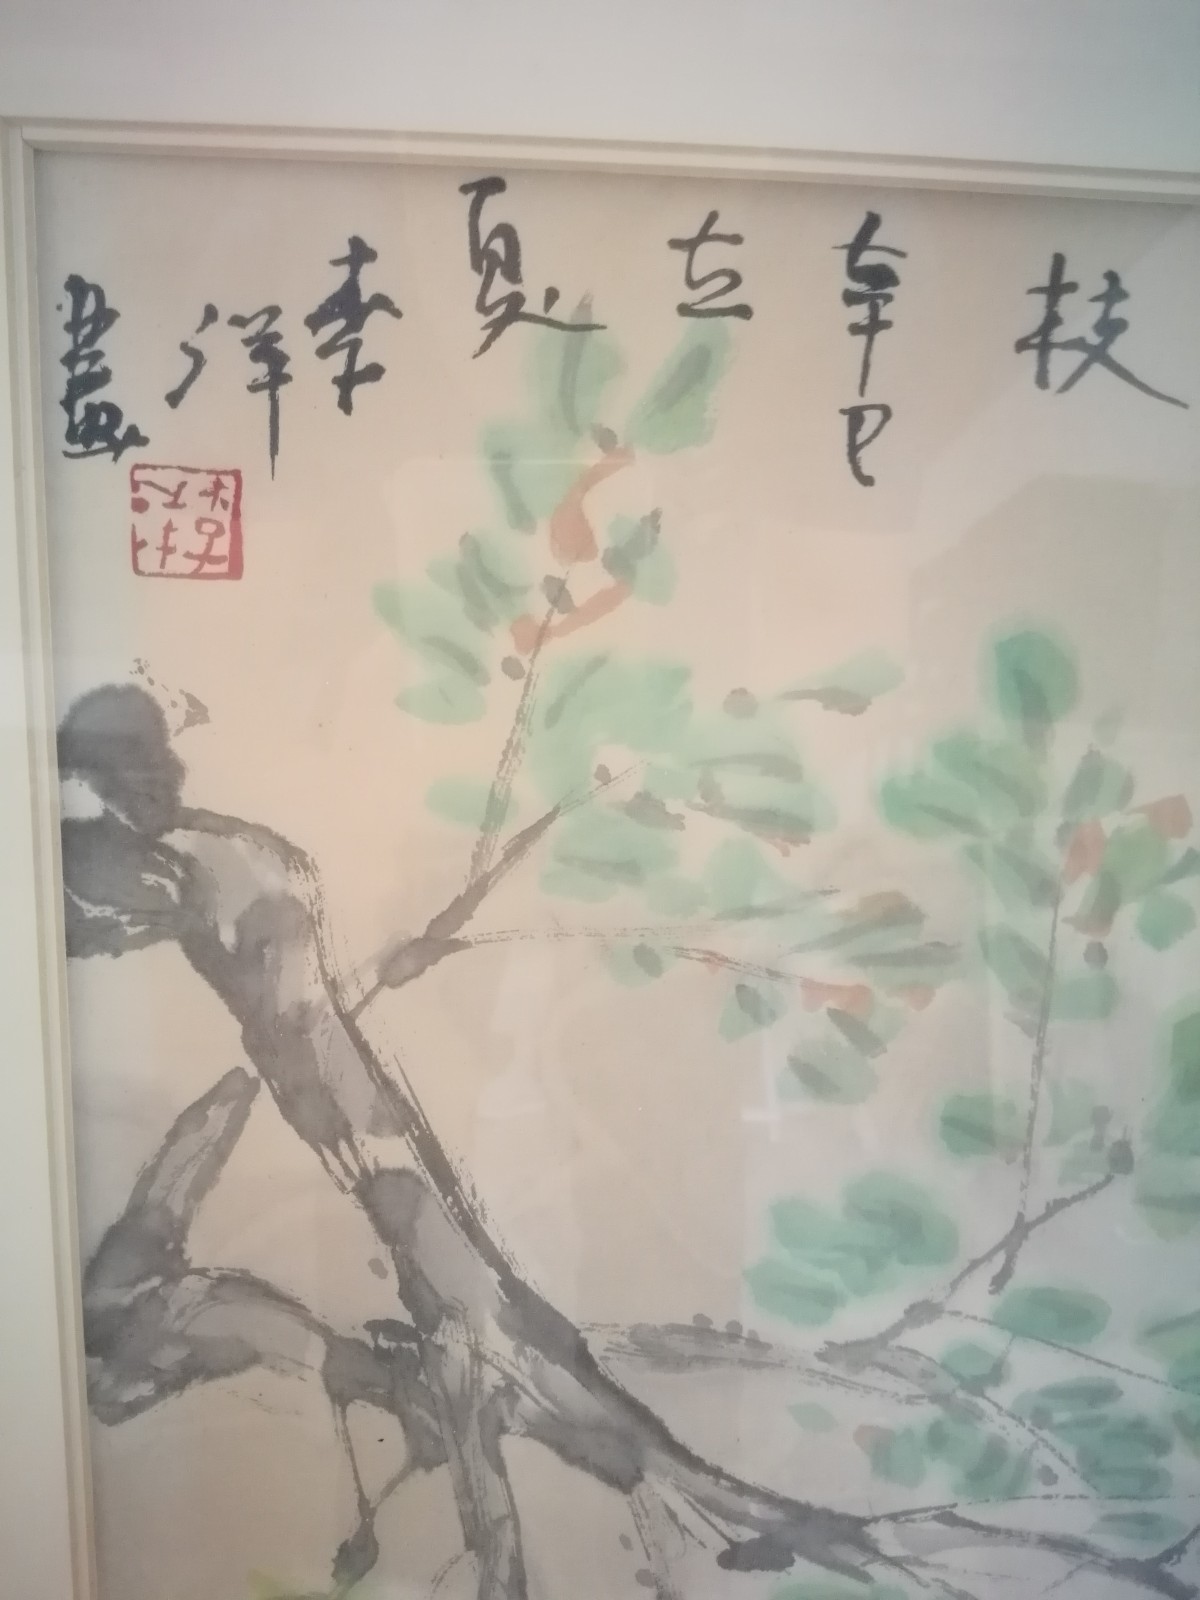 枝
辛巳
立
夏
李
洋
畫